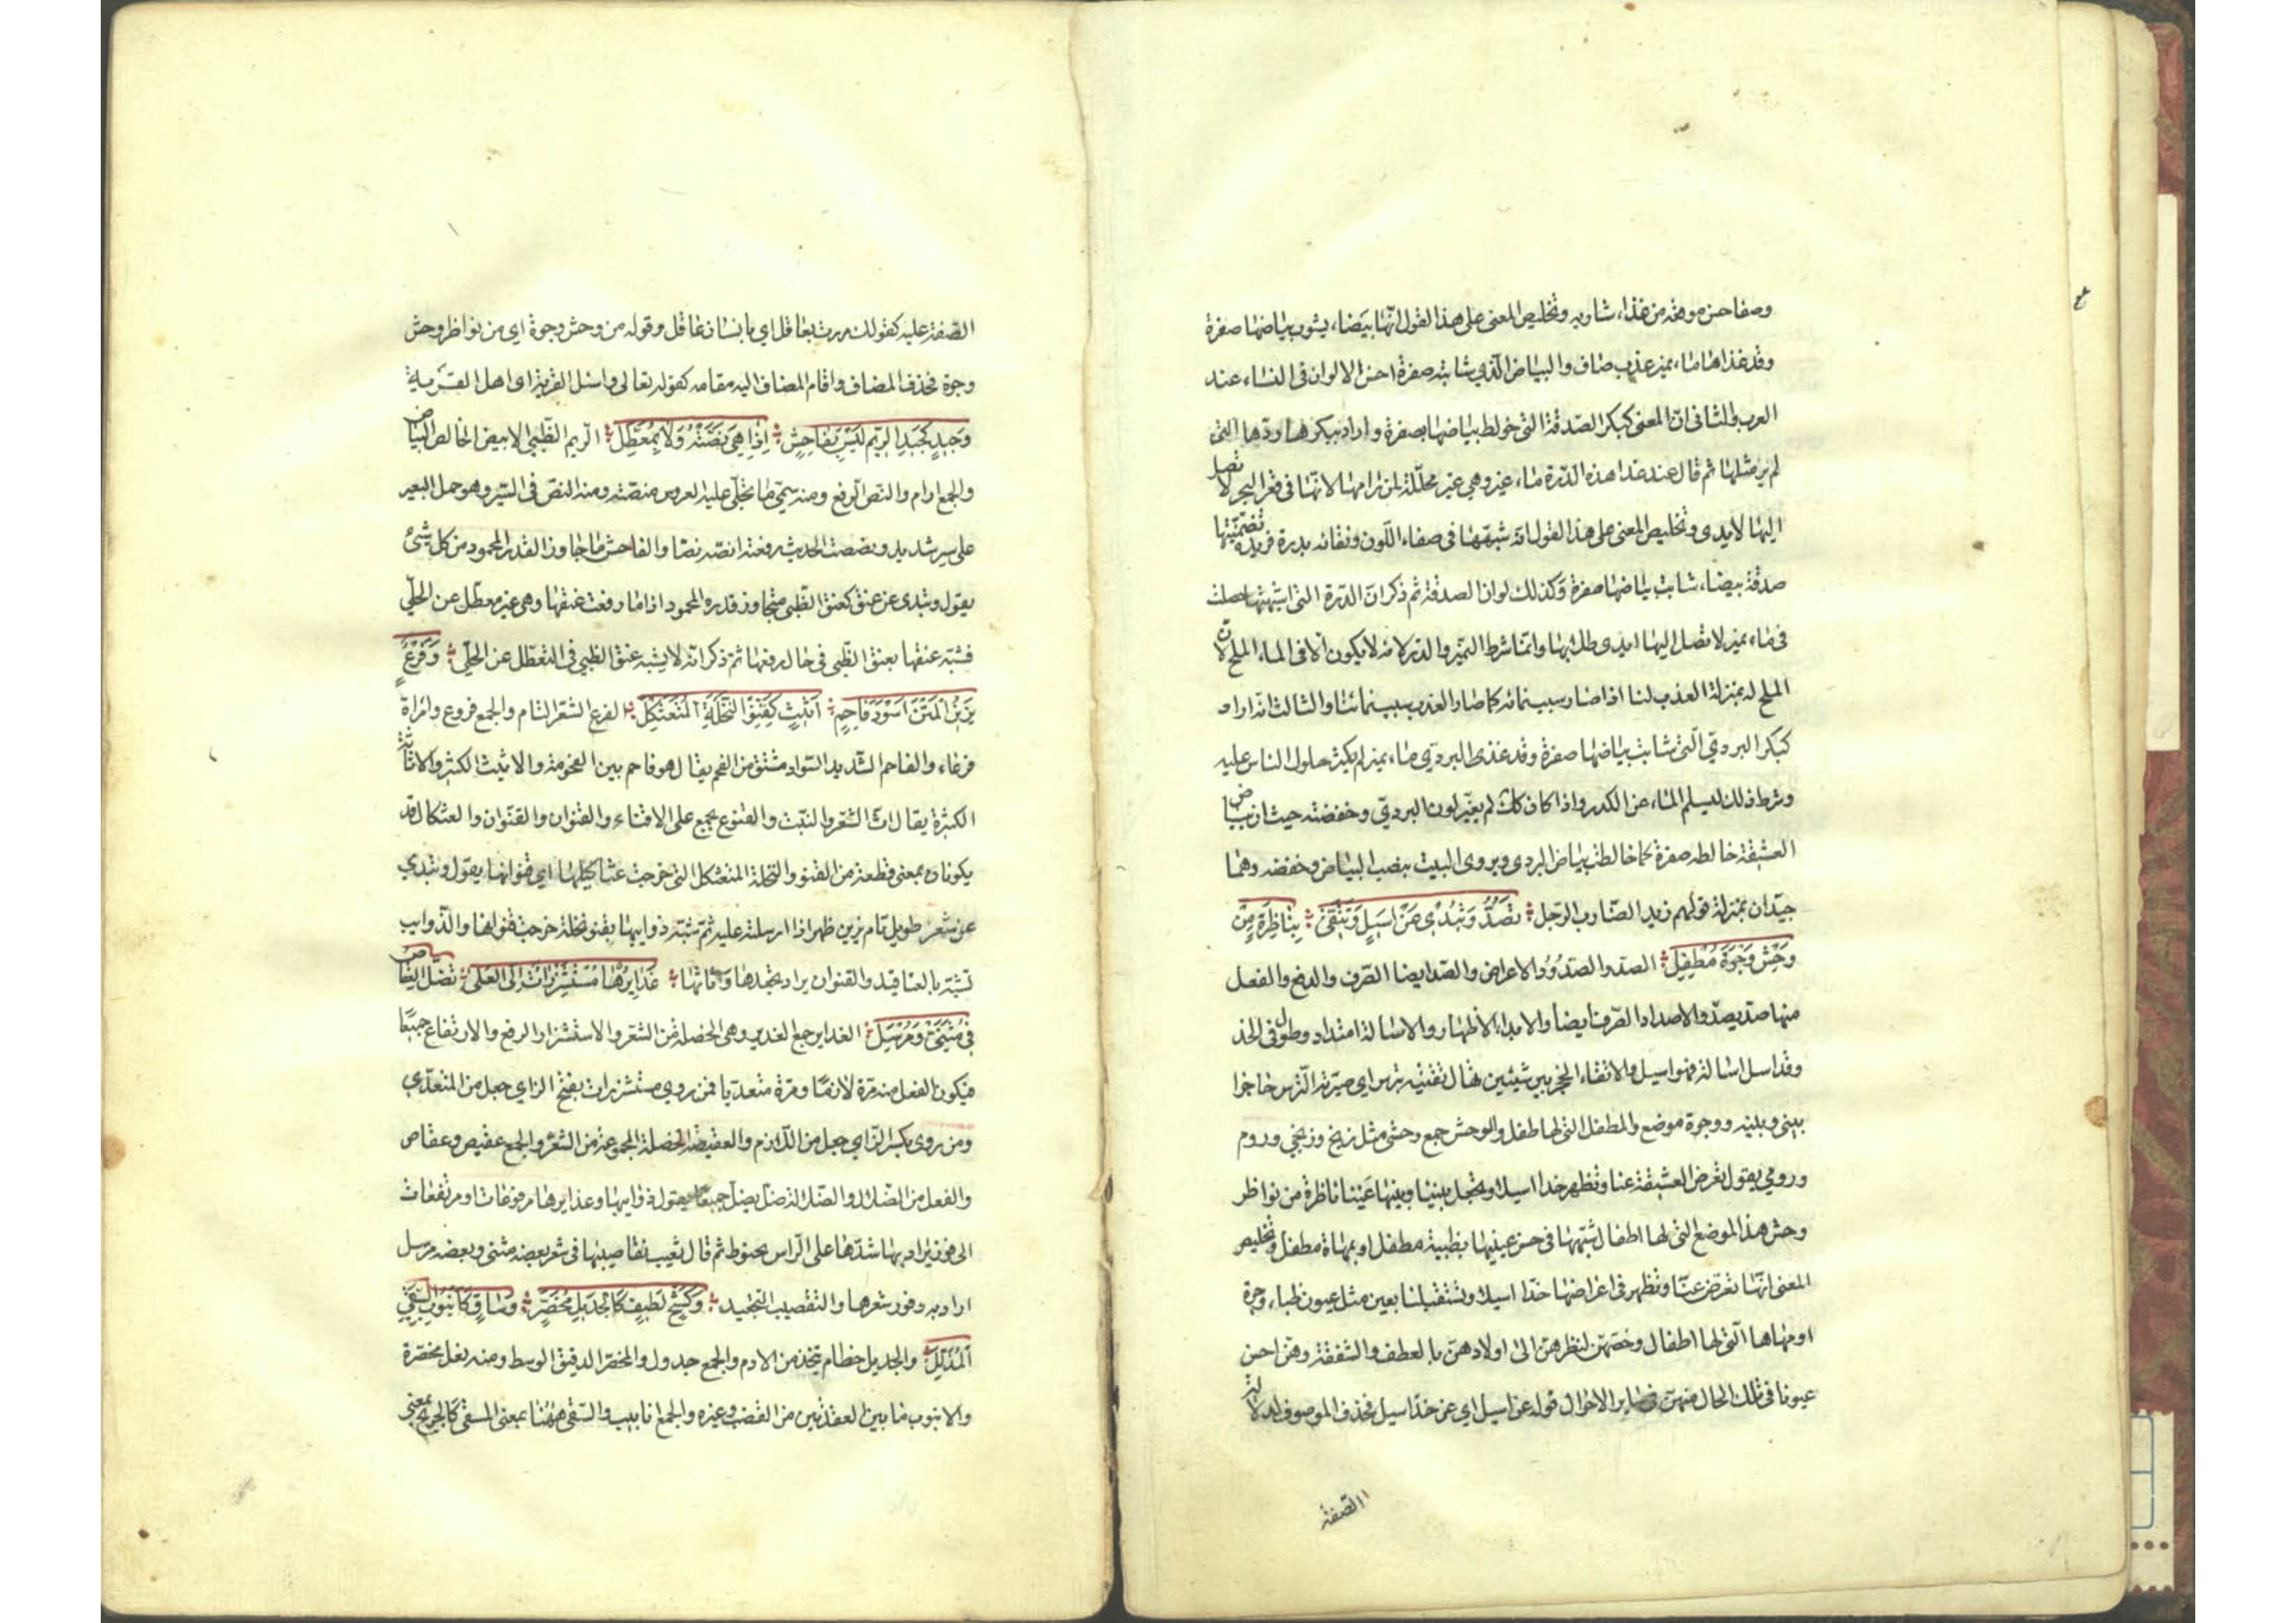 وصفا حسن موقعه من غذاء شاربه وتخليص المعنى على هذا القول انها بيضاء يشوب بياضها صفرة
وقد غذاها ماء نمير عذب صاف والبياض الذي شابته صفرة احسن الالوان في النساء عند
العرب والثاني ان المعنى كبكر الصدفة التي خولط بياضها بصفرة واراد ببكرها درتها التي
لم ير مثلها ثم قال عند غذا هذه الدرة ماء نمير وهي غير محللة لمن رامها لانها في قعر البحر لا تصل
اليها الايدى وتخليص المعنى على هذا القول انه شبهها في صفاء اللون ونقائه بدرة فريدة تضمنتها
صدفة بيضاء شابت بياضها صفرة وكذلك لون الصدفة ثم ذكر ان الدرة التي اشبهتها حصلت
في ماء نمير لا تصل اليها ايدى طلابها وانما شرط النمير والدر لانه لا يكون الا في الماء الملح لان
الملح له بمنزلة العذب لنا اذ صار سبب نمائه كما صار العذب سبب نمائنا والثالث انه اراد
كبكر البردي التي شابت بياضها صفرة وقد غذى البردي ماء نمير لم يكثر حلول الناس عليه
وشرط ذلك ليسلم الماء عن الكدر واذا كان كك لم يغير لون البردي وخفضته حيث ان بياض
العشيقة خالطه صفرة كما خالطت بياض البردى ويروى البيت بنصب البياض وخفضه وهما
جيدان بمنزلة قولهم زيد الضارب الرجل تَصُدُّ وَتُبْدِى عَنْ اَسِيلٍ وَتَتَّقِى بِنَاظِرَةٍ مِنْ
وَحْشِ وَجْرَةَ مُطْفِلِ الصد والصدود الاعراض والصد ايضا الصرف والدفع والفعل
منها صد يصد والاصداد الصرف ايضا والابداء الاظهار والاسالة امتداد وطول في الخد
وقد اسل اسالة فهو اسيل والاتقاء الحجز بين شيئين يقال تقيته بترس اي صيرت الترس حاجزا
بيني وبينه ووجرة موضع والمطفل التي لها طفل والوحش جمع وحشي مثل زنج وزنجي وروم
ورومي يقول تعرض العشيقة عنا وتظهر خدا اسيلا وتجعل بيننا وبينها عينا ناظرة من نواظر
وحش هذا الموضع التي لها اطفال شبهها في حسن عينيها بظبية مطفل او بمهاة مطفل وتخليص
المعنى انها تعرض عنا وتظهر في اعراضها خدا اسيلا وتستقبلنا بعين مثل عيون ظباء وجرة
او مهاها التي لها اطفال وخصهن لنظرهن الى اولادهن بالعطف والشفقة وهن احسن
عيونا في تلك الحال منهن في ساير الاحوال قوله عن اسيل اي عن خد اسيل فحذف الموصوف لدلالة
الصفة
الصفة عليه كقولك مررت بعاقل اي بانسان عاقل وقوله من وحش وجرة اي من نواظر وحش
وجرة فحذف المضاف واقام المضاف اليه مقامه كقوله تعالى واسئل القرية اى اهل القرية
وَجِيدٍ كَجِيدِ الرِّيمِ لَيْسَ بِفَاحِشٍ اِذَا هِيَ نَصَّتْهُ وَلَا بِمُعَطَّلِ الريم الظبي الابيض الخالص البياض
والجمع ارام والنص الرفع ومنه سمي ما تجلى عليه العروس منصته ومنه النص في السير وهو حمل البعير
على سير شديد ونصصت الحديث رفعته انصه نصا والفاحش ما جاوز القدر المحمود من كل شئ
يقول وتبدى عن عنق كعنق الظبي متجاوز قدره المحمود اذا ما رفعت عنقها وهي غير معطل عن الحلي
فشبه عنقها بعنق الظبي في حال رفعها ثم ذكر انه لا يشبه عنق الظبي في التعطل عن الحلي وَفَرْعٍ
يَزِينُ الْمَتْنَ اَسْوَدَ فَاحِمٍ اَثِيثٍ كَقِنْوِ النَّخْلَةِ الْمُتَعَثْكِلِ الفرع الشعر التام والجمع فروع وامراة
فرعاء والفاحم الشديد السواد مشتق من الفحم يقال هو فاحم بين الفحومة والاثيث الكثير والاثاثة
الكثرة يقال اث الشعر والنبت والقنو يجمع على الاقناء والقنوان والقنوان والعثكال قد
يكونان بمعنى قطعة من القنو والنخلة المتعثكل التي خرجت عثاكيلها اي قنوانها يقول وتبدي
عن شعر طويل تام يزين ظهرها اذا ارسلته عليه ثم شبه ذوايبها بقنو نخلة خرجت قنوانها والذوايب
تشبه بالعناقيد والقنوان يراد تجعدها واثاثتها غَدَايِرُهَا مُسْتَشْزِرَاتٌ اِلَى الْعُلَى تَضِلُّ الْعِقَاصُ
فِي مُثَنًّى وَمُرْسَلِ الغداير جمع الغديرة وهي الخصلة من الشعر والاستشزار الرفع والارتفاع جميعا
فيكون الفعل منه مرة لازما ومرة متعديا فمن روي مستشزرات بفتح الزاي جعل من المتعدي
ومن روى بكسر الزاي جعل من اللازم والعقيصة الخصلة المجموعة من الشعر والجمع عقيص وعقاص
والفعل من الضلال والضلالة ضل يضل جميعا يقول ذوايبها وغدايرها مرفوعات او مرتفعات
الى فوق يراد بها شدها على الراس بخيوط ثم قال تغيب تقاصيبها في شعر بعضه مثنى وبعضه مرسل
اراد به وفور شعرها والتقصيب التجعيد وَكَشْحٍ لَطِيفٍ كَالْجَدِيلِ مُخَصَّرٍ وَسَاقٍ كَاُنْبُوبِ السَّقِيِّ
الْمُذَلَّلِ والجديل خطام يتخذ من الادم والجمع جدول والمخصر الدقيق الوسط ومنه نعل مخصرة
والانبوب ما بين العقدتين من القصب وغيره والجمع انابيب والسقي ههنا بمعنى المسقي كالجريح بمعنى